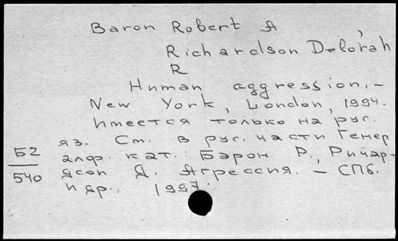 Baron Robert A
Richardson Deborah
R
Human aggression, -
New York, London, 1994.
Имеется только на рус.
яз. См. в рус. части Генер
алф. кат.: Бэрон Р., Ричар-
дсон Д. Агрессия. - СПб.
и др., 1997.
Б2
540